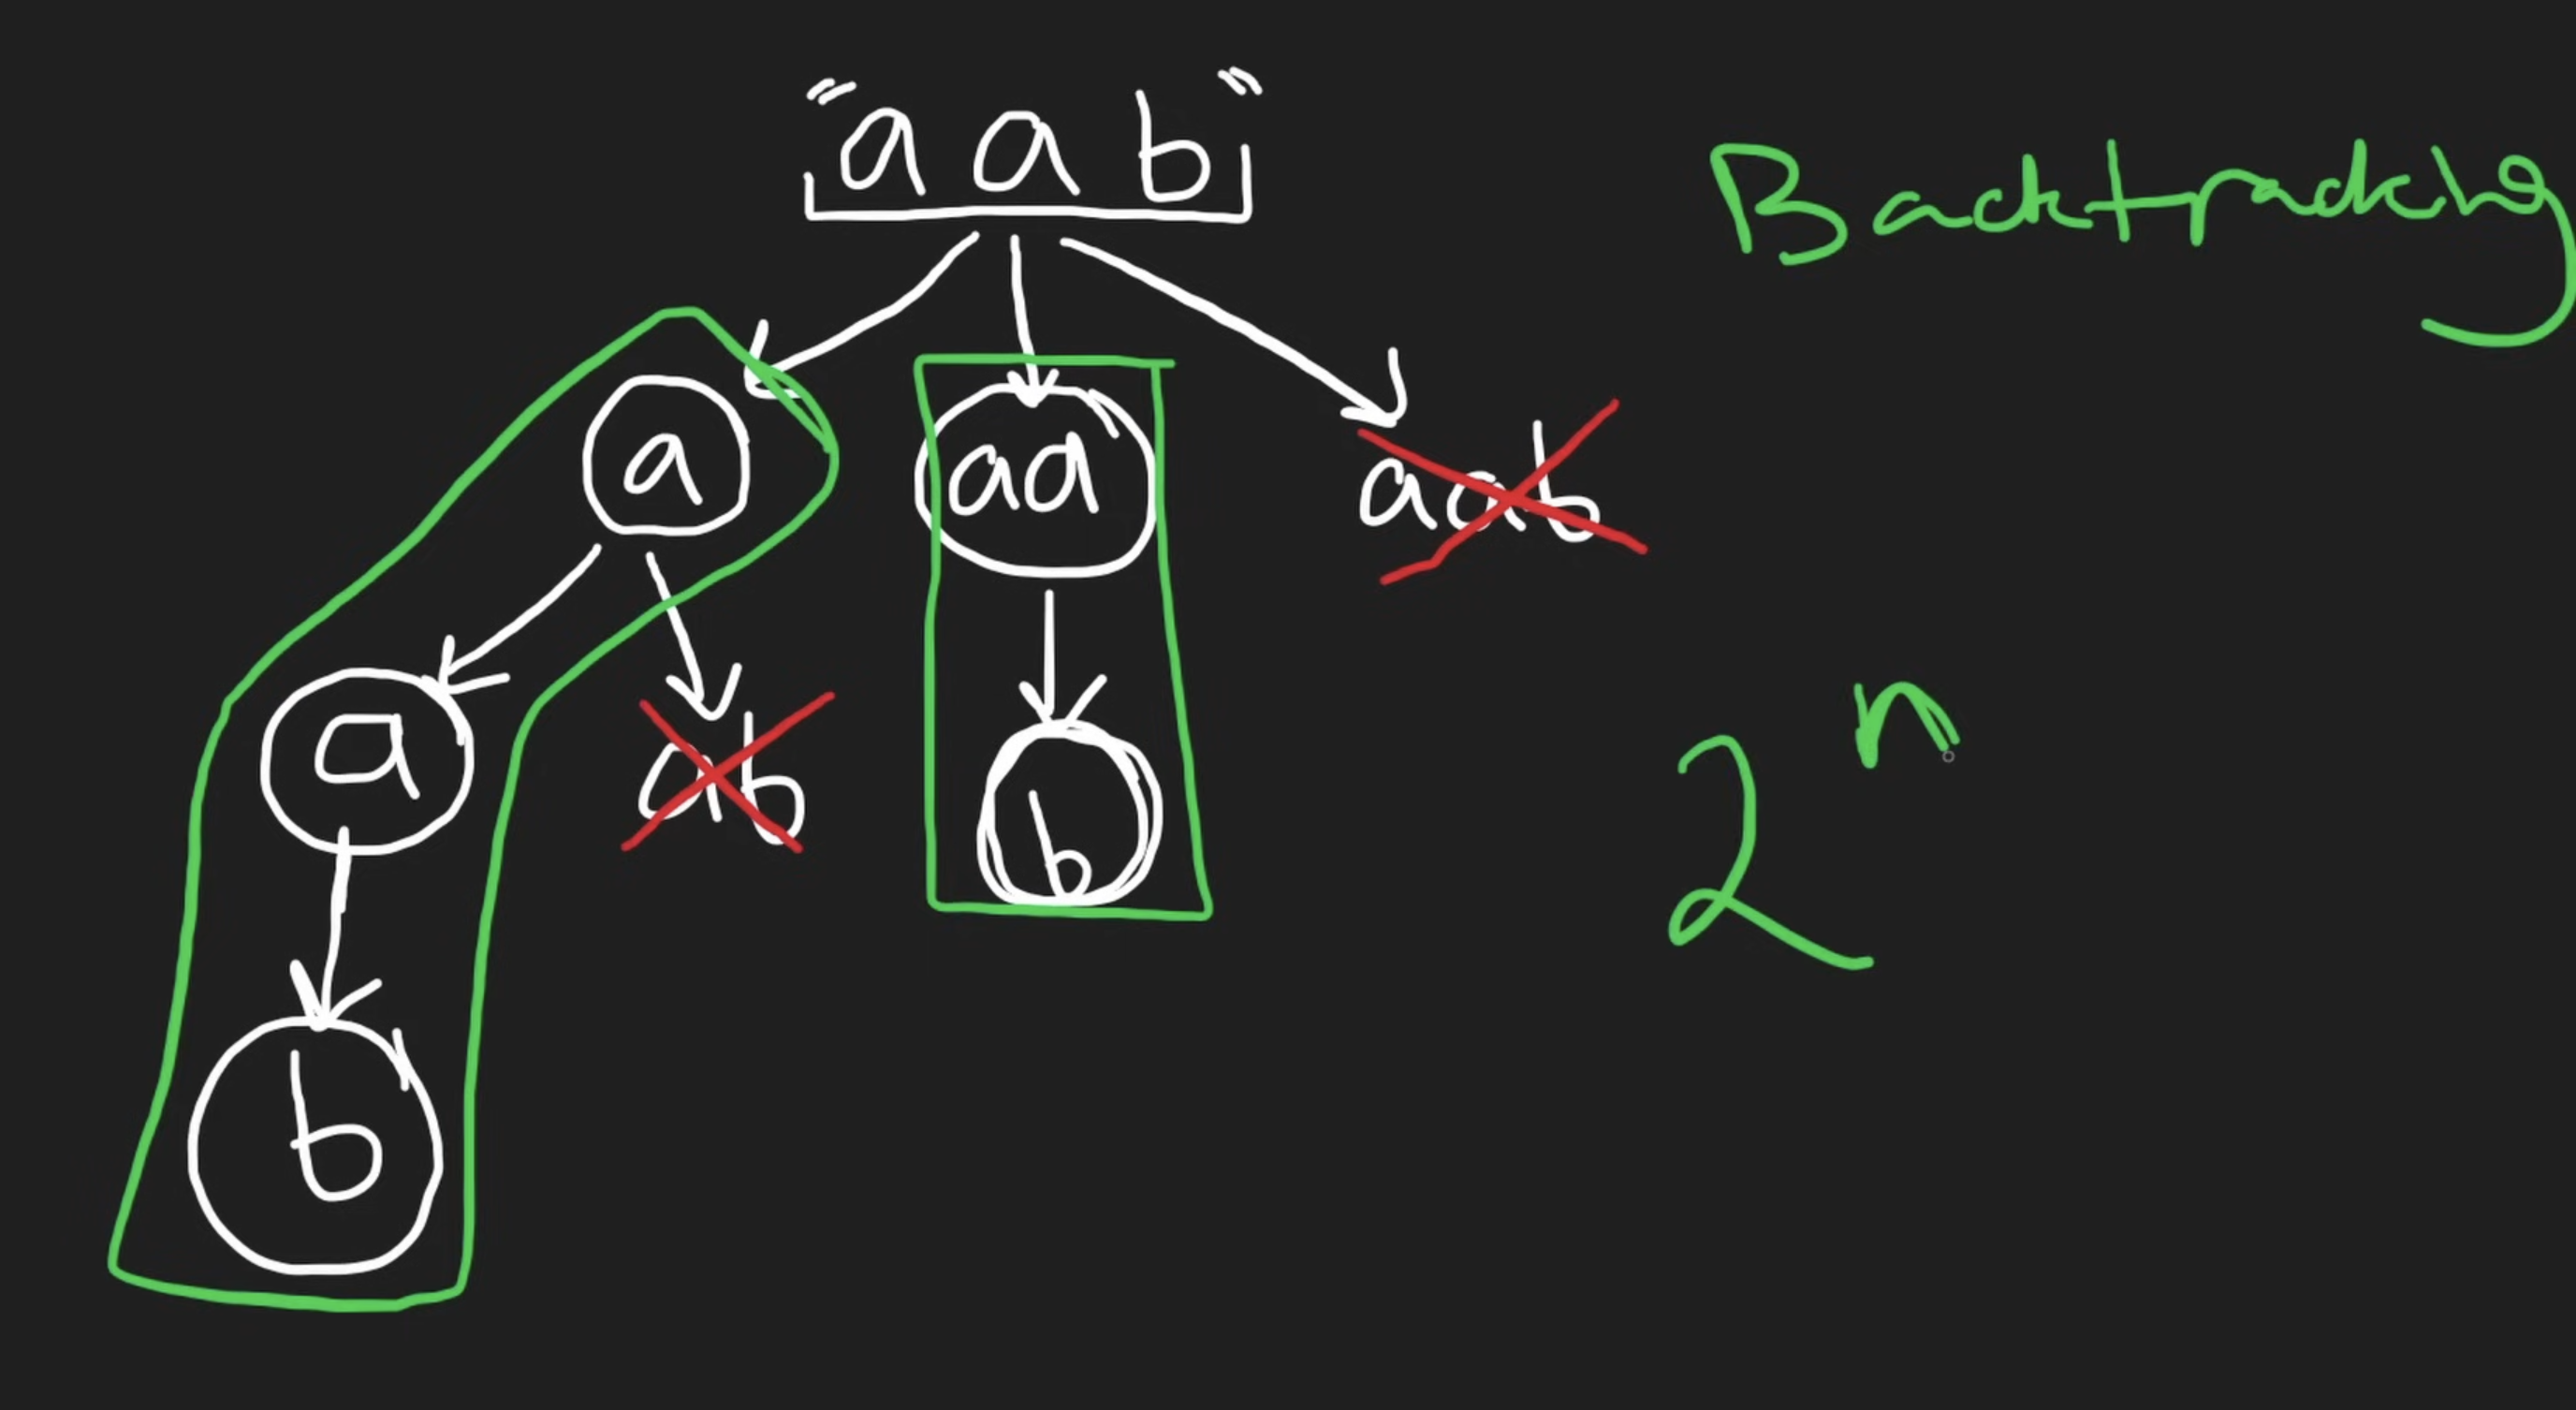 "aab"
Backtracking
a
aa
aab
a
ab
b
b
2ⁿ